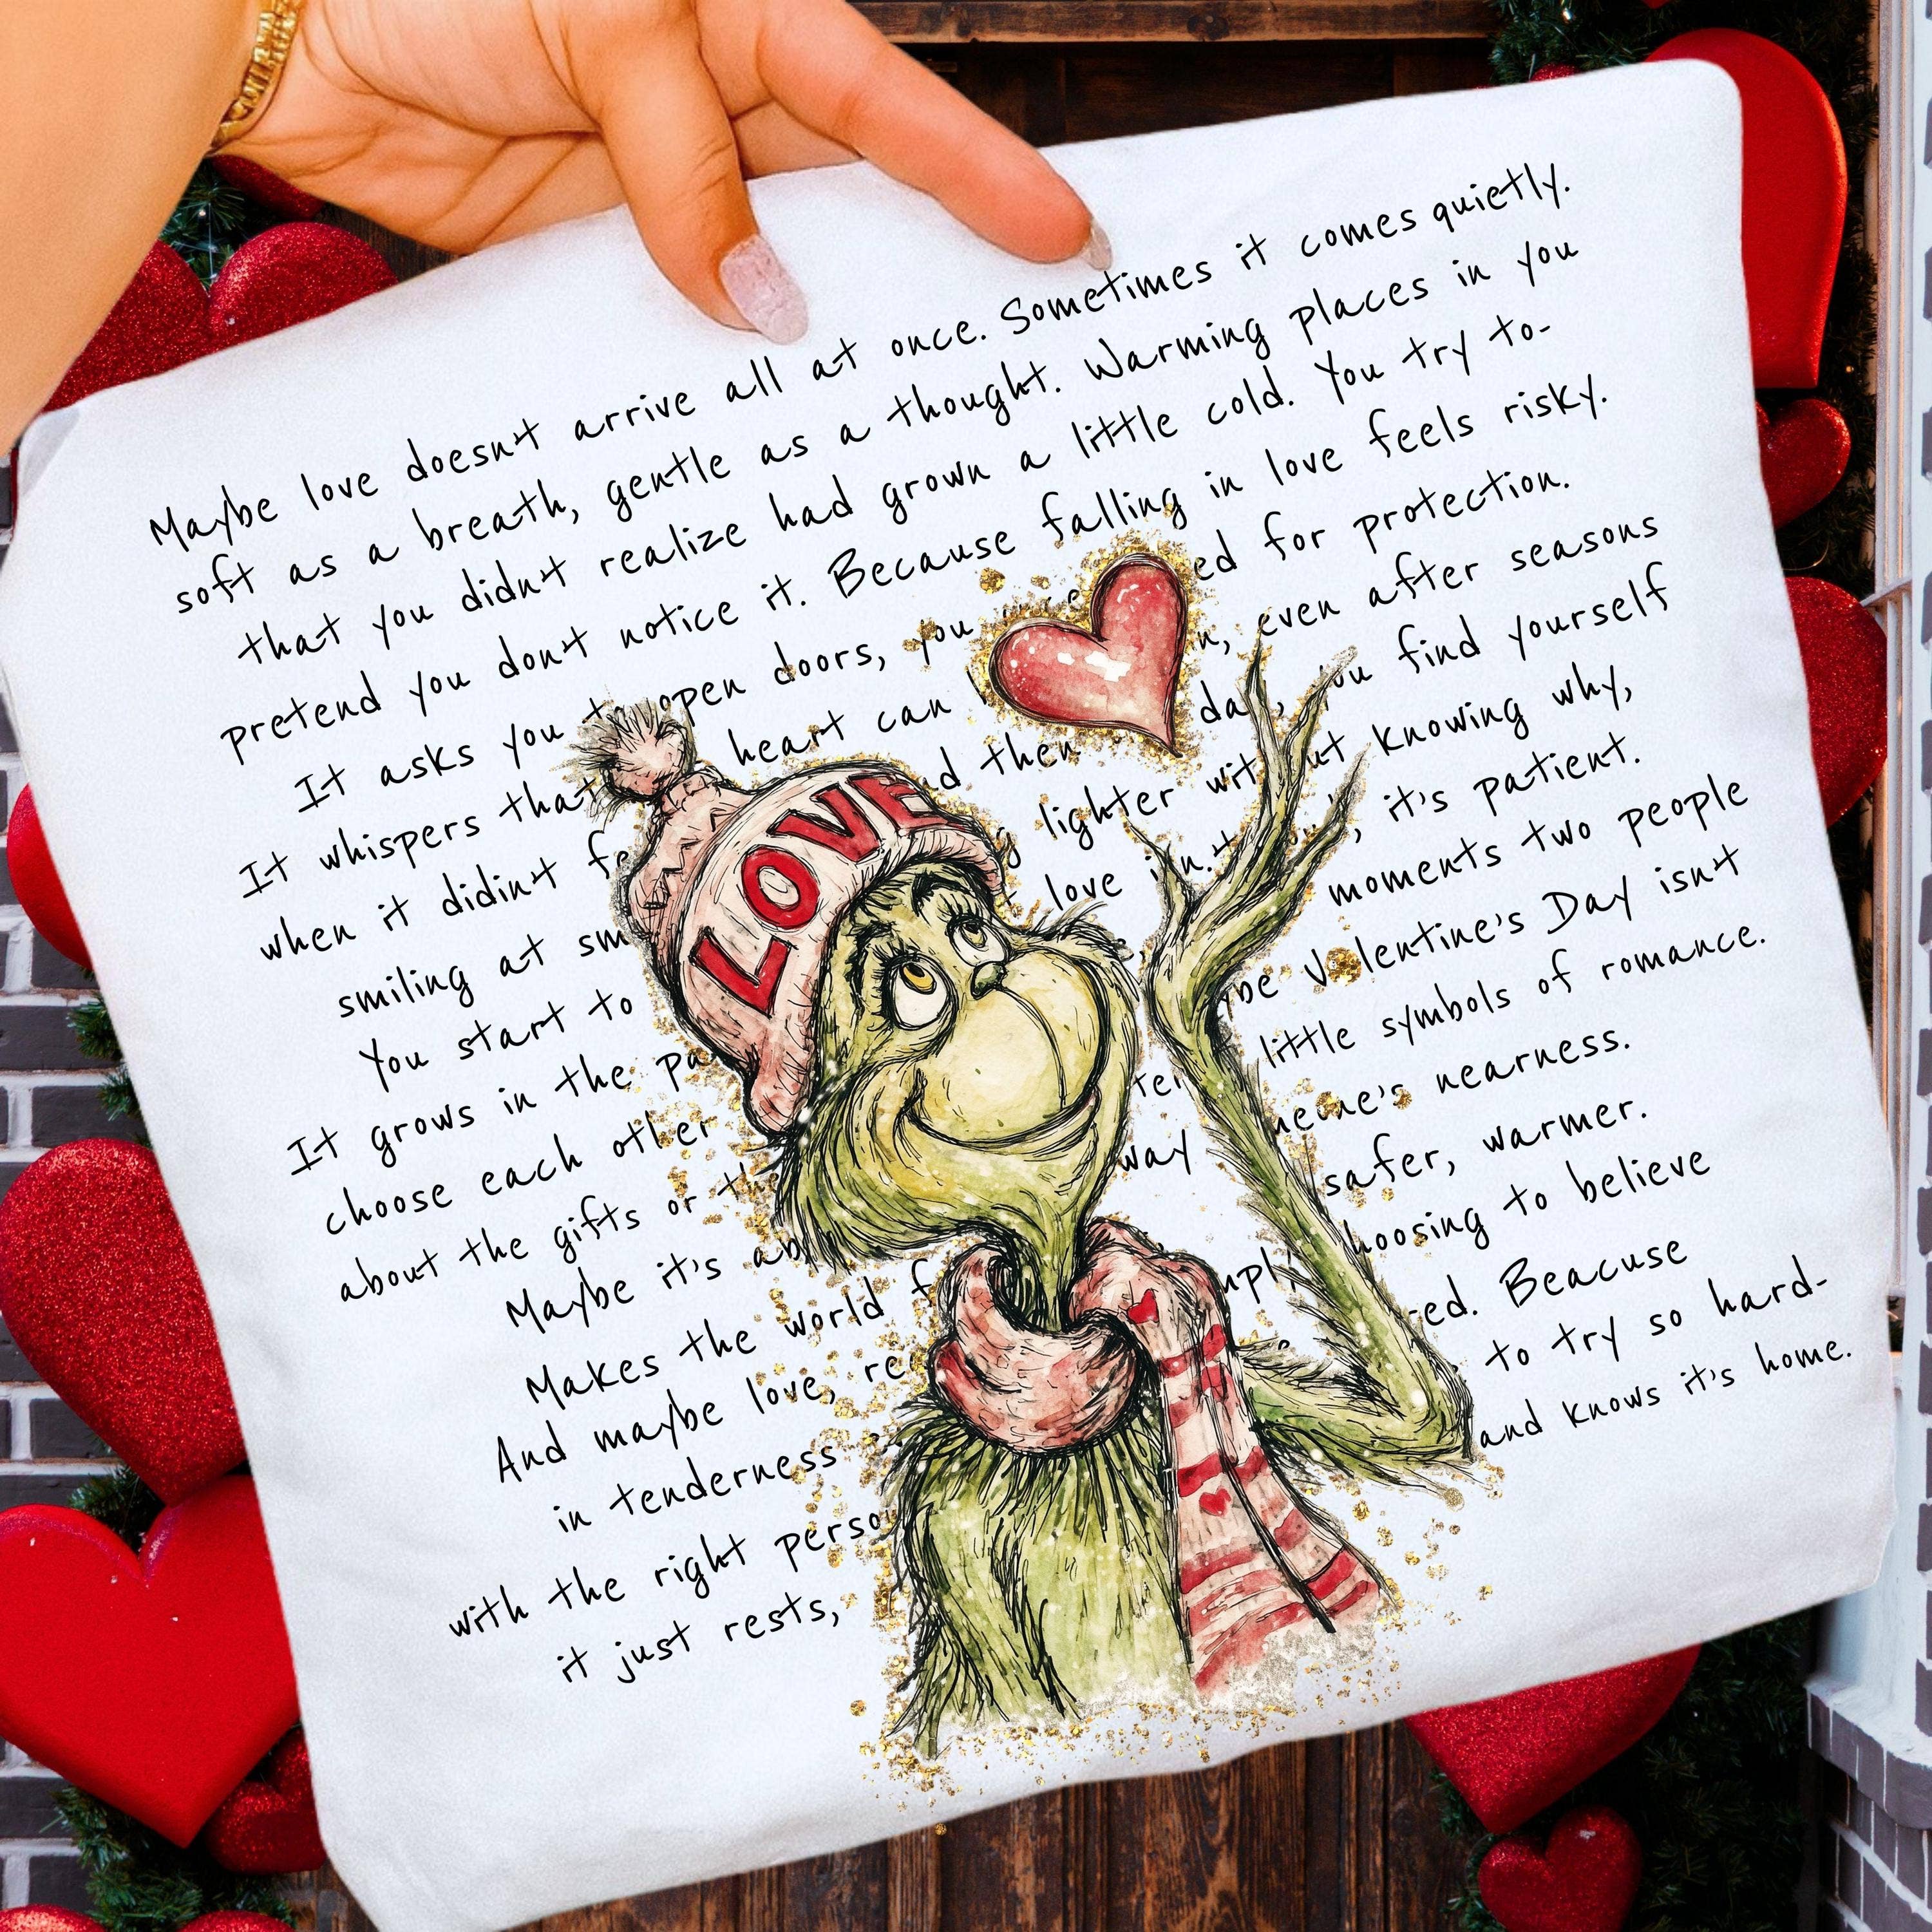 Maybe love doesn't arrive all at once. Sometimes it comes quietly.
soft as a breath, gentle as a thought. Warming places in you
that you didn't realize had grown a little cold. You try to-
pretend you don't notice it. Because falling in love feels risky.
It asks you to open doors, you for protection.
It whispers that heart can even after seasons
when it didin't then day, you find yourself
smiling at lighter without knowing why,
You start to love isn't it's patient.
It grows in the moments two people
choose each other Valentine's Day isn't
about the gifts or the little symbols of romance.
Maybe it's way nearness.
Makes the world safer, warmer.
And maybe love, choosing to believe
in tenderness Beacuse
with the right person to try so hard-
it just rests, and knows it's home.
LOVE